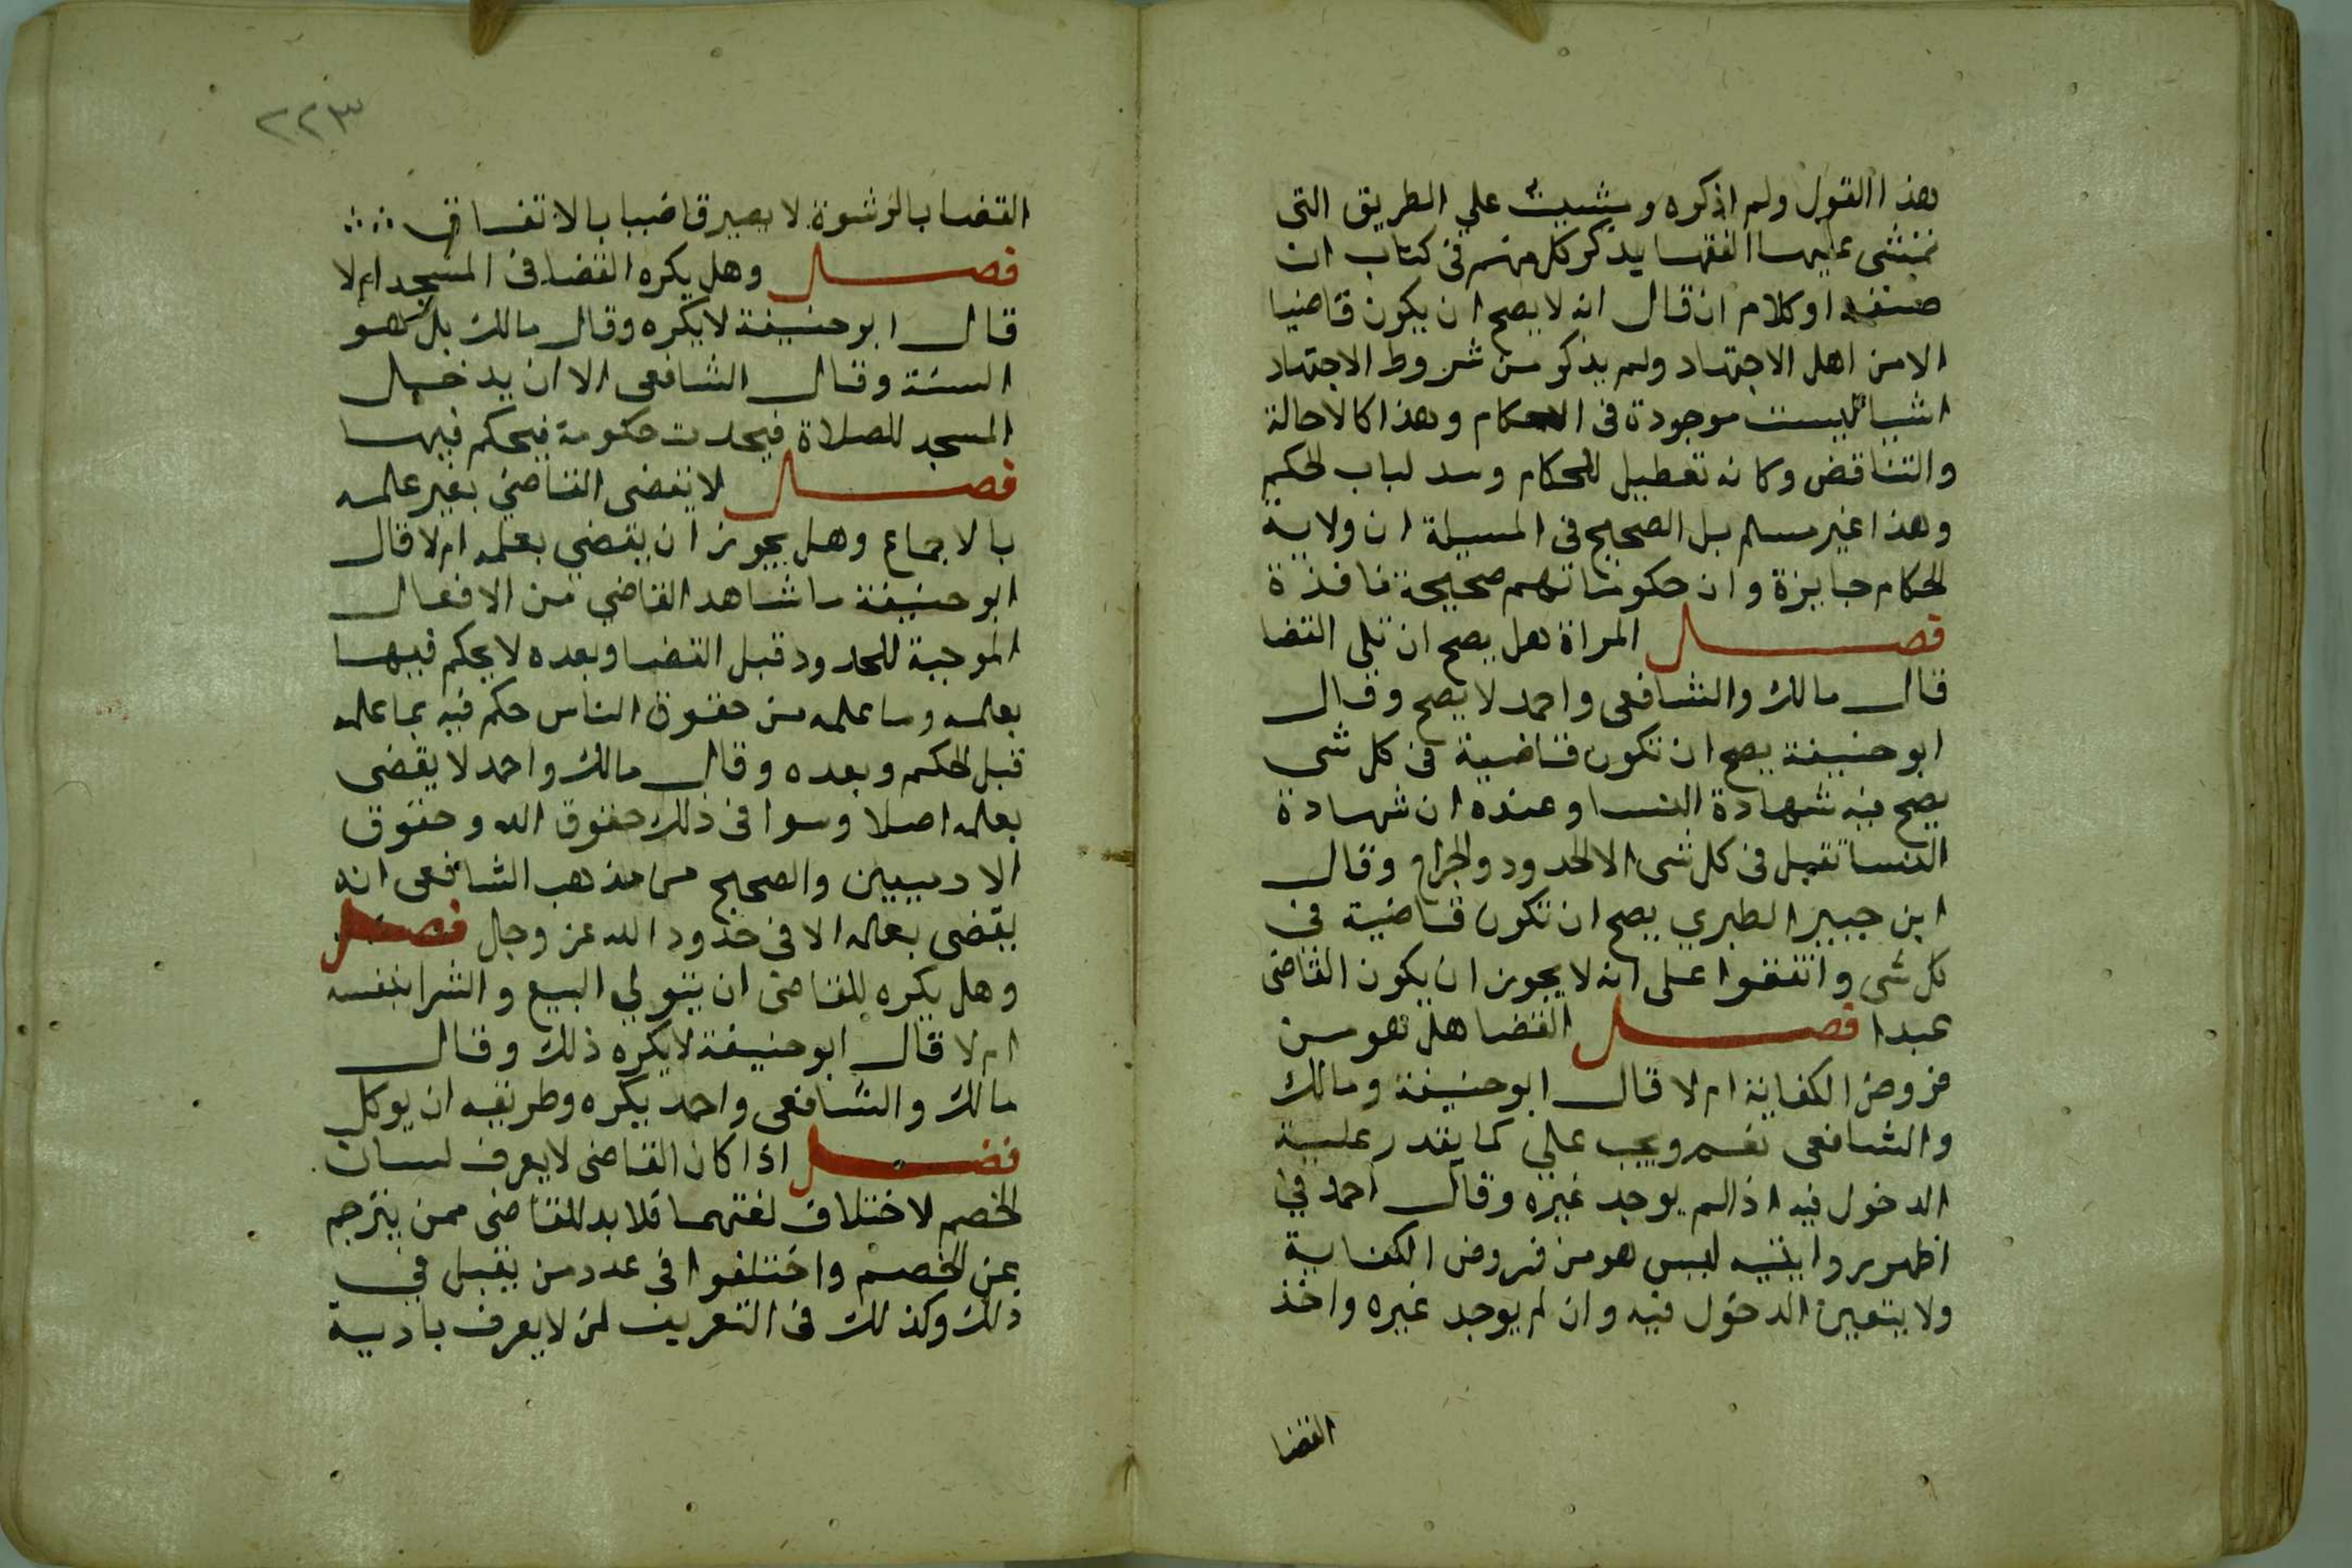 هذا القول ولم اذكره ومشيت علي الطريق التى
تمشى عليها الفقها يذكر كل منهم فى كتاب ان
صنفه او كلام ان قال انه لا يصح ان يكون قاضيا
الا من اهل الاجتهاد ولم يذكر من شروط الاجتهاد
اشيا ليست موجودة فى الحكام وهذا كالاحالة
والتناقض وكانه تعطيل للحكام وسد لباب الحكم
وهذا غير مسلم بل الصحيح فى المسيلة ان ولاية
الحكام جايزة وان حكوماتهم صحيحة نافذة
فصل المراة هل يصح ان تلى القضا
قال مالك والشافعى واحمد لا يصح وقال
ابو حنيفة يصح ان تكون قاضية فى كل شى
يصح فيه شهادة النسا وعنده ان شهادة
النسا تقبل فى كل شى الا الحدود والجراح وقال
ابن جبير الطبري يصح ان تكون قاضية في
كل شى واتفقوا على انه لا يجوز ان يكون القاضى
عبدا فصل القضا هل هو من
فروض الكفاية ام لا قال ابو حنيفة ومالك
والشافعى نعم ويجب علي كما يقدر علية
الدخول فيه اذا لم يوجد غيره وقال احمد في
اظهر روايتيه ليس هو من فروض الكفاية
ولا يتعين الدخول فيه وان لم يوجد غيره واخذ
القضا
٢٢٣
القضا بالرشوة لا يصير قاضيا بالاتفاق
فصل وهل يكره القضا فى المسجد ام لا
قال ابو حنيفة لا يكره وقال مالك بل هو
السنة وقال الشافعى الا ان يدخل
المسجد للصلاة فيحدث حكومة فيحكم فيها
فصل لا يقضى القاضي بغير علمه
بالاجماع وهل يجوز ان يقضي بعلمه ام لا قال
ابو حنيفة ما شاهد القاضي من الافعال
الموجبة للحدود قبل القضا وبعده لا يحكم فيها
بعلمه وما علمه من حقوق الناس حكم فيه بما علمه
قبل الحكم وبعده وقال مالك واحمد لا يقضى
بعلمه اصلا وسوا فى ذلك حقوق الله وحقوق
الادميين والصحيح من مذهب الشافعى انه
يقضى بعلمه الا فى حدود الله عز وجل فصل
وهل يكره للقاضى ان يتولي البيع والشرا بنفسه
ام لا قال ابو حنيفة لا يكره ذلك وقال
مالك والشافعى واحمد يكره وطريقه ان يوكل
فصل اذا كان القاضى لا يعرف لسان
الخصم لاختلاف لغتهما فلا بد للقاضى ممن يترجم
عن الخصم واختلفوا فى عدد من يقبل في
ذلك وكذلك فى التعريف لمن لا يعرف بادية